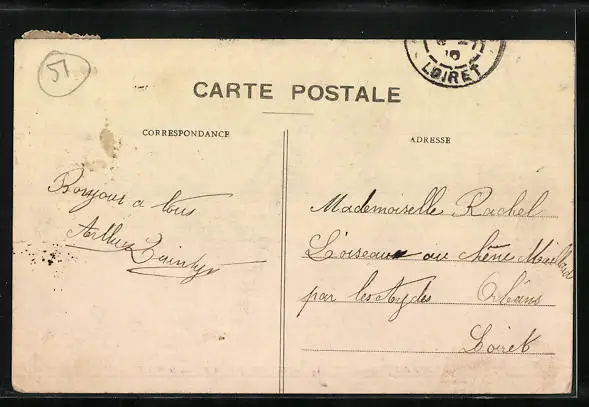 51
LOIRET
CARTE POSTALE
CORRESPONDANCE
ADRESSE
Bonjour a tous
Arthur
Mademoiselle Rachel
Loiseau au chêne Maillard
par les Aydes Orléans
Loiret